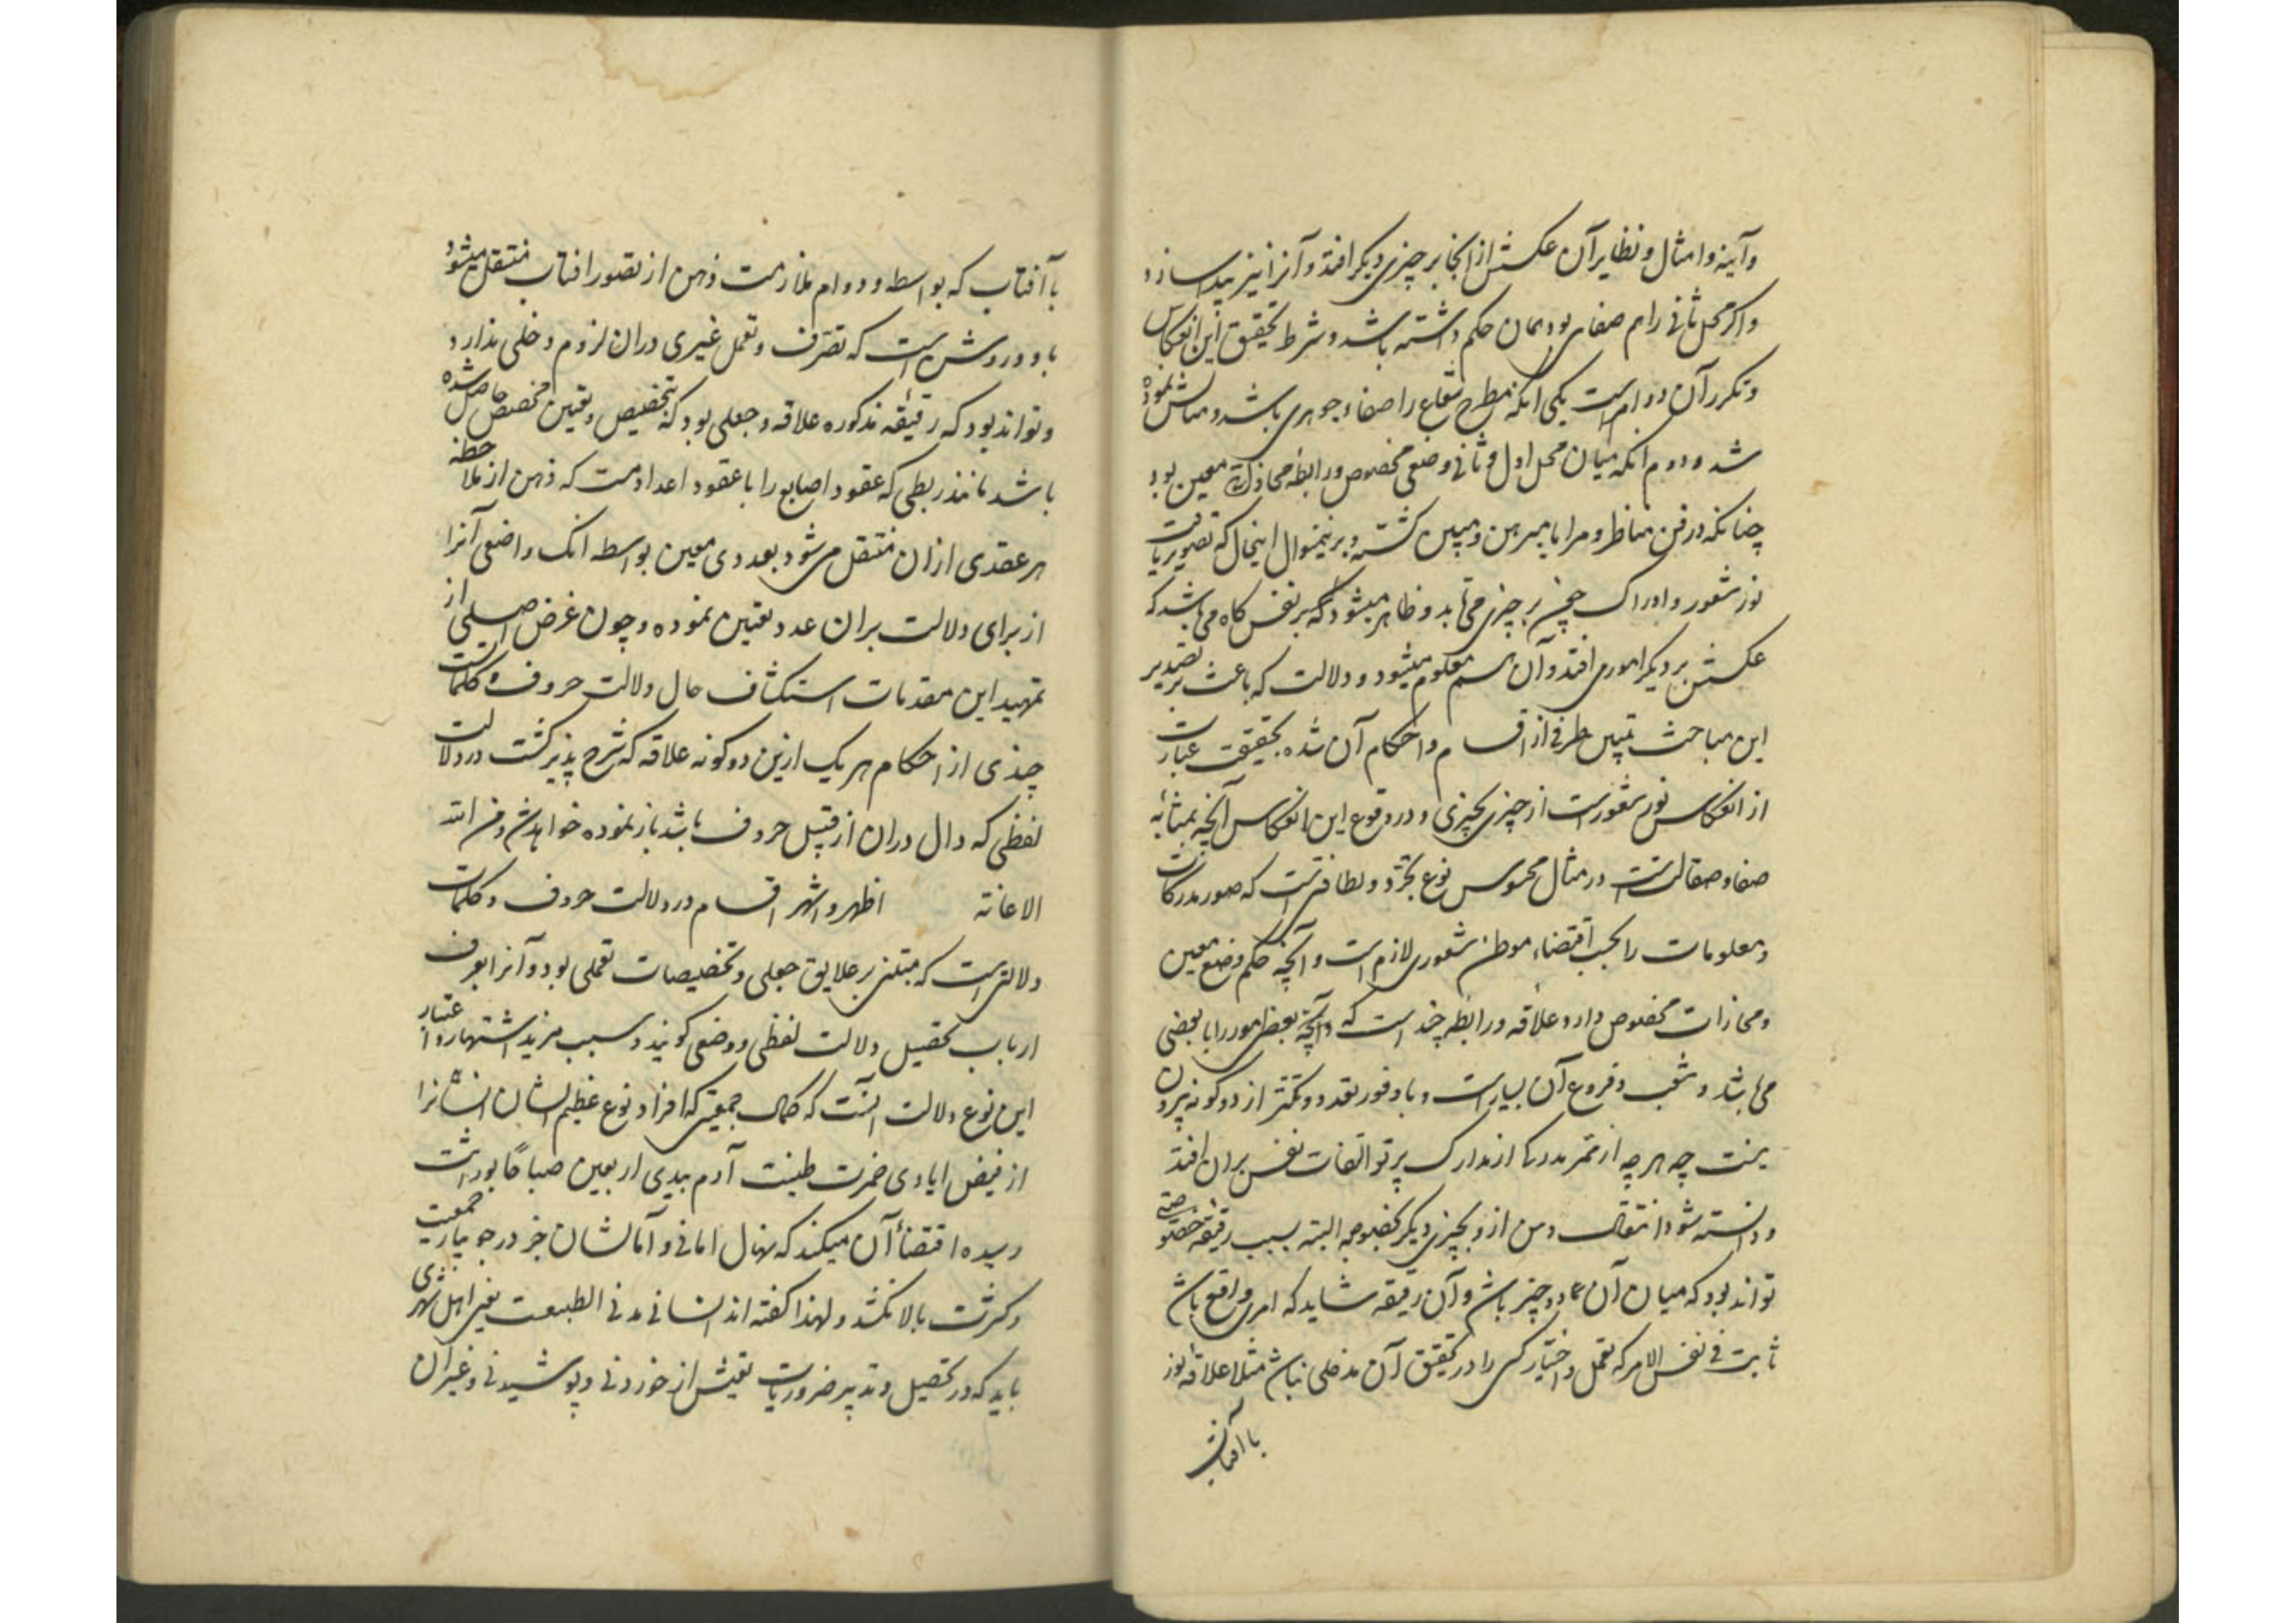 وآینه وامثال ونظایر آن عکسش از انجا بر چیزی دیکر افتد وآنرا نیز پیدا سازد
واکر محل ثانی را هم صفای بود همان حکم داشته باشد وشرط تحقیق این انعکاس
وتکرر آن دو امرست یکی انکه مطرح شعاع را صفاء جوهری باشد
شد ودوم انکه میان محل اول وثانی وضعی مخصوص ورابطه محاذات معین بود
چنانکه در فن مناظر ومرایا مبرهن ومبین کشته وبرینمنوال اینحال که تصویر یافت
نور شعور وادراک چون بر چیزی می تابد وظاهر میشود که بر نفس کاه می باشد که
عکسش بر دیکر اموری افتد وآن هم معلوم میشود ودلالت که باعث بر تصدیر
این مباحث تبیین طرفی از اقسام واحکام آن شده بحقیقت عبارت
از انعکاس نور شعورست از چیزی بچیزی ودر وقوع این انعکاس آنچه بمثابه
صفا وصقالتست در مثال محسوس نوع تجرد ولطافتیست که صور مدرکات
ومعلومات را بحسب اقتضاء موطن شعوری لازم است وآنچه حکم وضع معین
ومحاذات مخصوص دارد علاقه ورابطه چند است که بعضی امور را با بعضی
می باشد وشعب وفروع آن بسیارست وبا وفور تعدد وتکثر از دو کونه بیرون
نیست چه هر چه از ممر مدرکی از مدارک پرتو التفات نفس بران افتد
ودانسته شود انتقال ذهن ازو بچیزی دیکر بخصوصه البته بسبب رقیقه خصوصیتی
تواند بود که میان آن هر دو چیز باشد وآن رقیقه شاید که امری واقع باشد
ثابت فی نفس الامر که تعمل واختیار کسی را در تحقیق آن مدخلی نباشد مثلا علاقه نور
با آفتاب
با آفتاب که بواسطه ودوام ملازمت ذهن از تصور افتاب منتقل میشود
باو وروشن است که تصرف وتعمل غیری دران لزوم دخلی ندارد
وتواند بود که رقیقه مذکوره علاقه جعلی بود که بتخصیص وتعیین مخصص حاصل شده
باشد مانند ربطی که عقود اصابع را با عقود اعداد است که ذهن از ملاحظه
هر عقدی ازان منتقل می شود بعددی معین بواسطه انک واضعی آنرا
از برای دلالت بران عدد تعیین نموده وچون غرض اصلی از
تمهید این مقدمات استکشاف حال دلالت حروف وکلماتست
چندی از احکام هر یک ازین دو کونه علاقه که شرح پذیر کشت در دلالت
لفظی که دال دران از قبیل حروف باشد باز نموده خواهد شد ومن الله
الاعانه اظهر واشهر اقسام در دلالت حروف وکلمات
دلالتیست که مبتنی بر علایق جعلی وتخصیصات تعملی بود وآنرا بعرف
ارباب تحصیل دلالت لفظی ووضعی کویند وسبب مزید اشتهار واعتبار
این نوع دلالت آنست که کمال جمعیتی که افراد نوع عظیم الشان انسانرا
از فیض ایادی خمرت طینت آدم بیدی اربعین صباحا بوراثت
رسیده اقتضاء آن میکند که نهال امانی وآمالشان جز در جویبار جمعیت
وکثرت بالا نکشد ولهذا کفته اند انسانی مدنی الطبیعت یعنی اهل شهری
باید که در تحصیل وتدبیر ضروریات تعیش از خوردنی وپوشیدنی وغیر آن